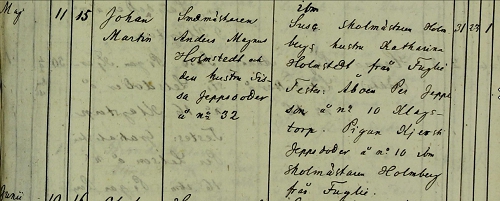 Maj 11 15 Johan Martin
Smedmästaren
Anders Magnus
Holmstedt och
dess hustru
Jeppsdoter
å no 32
ibm
Susc. Skolmästare Holm
bergs hustru Katharina
Holmstedt från Fuglie
Testes: Åboen Per Jepps
son å no 10 Klags-
torp. Pigan Kjersti
Jeppsdoter å no 10 ibm
Skolmästaren Holmberg
från Fuglie.
31 1
Junii